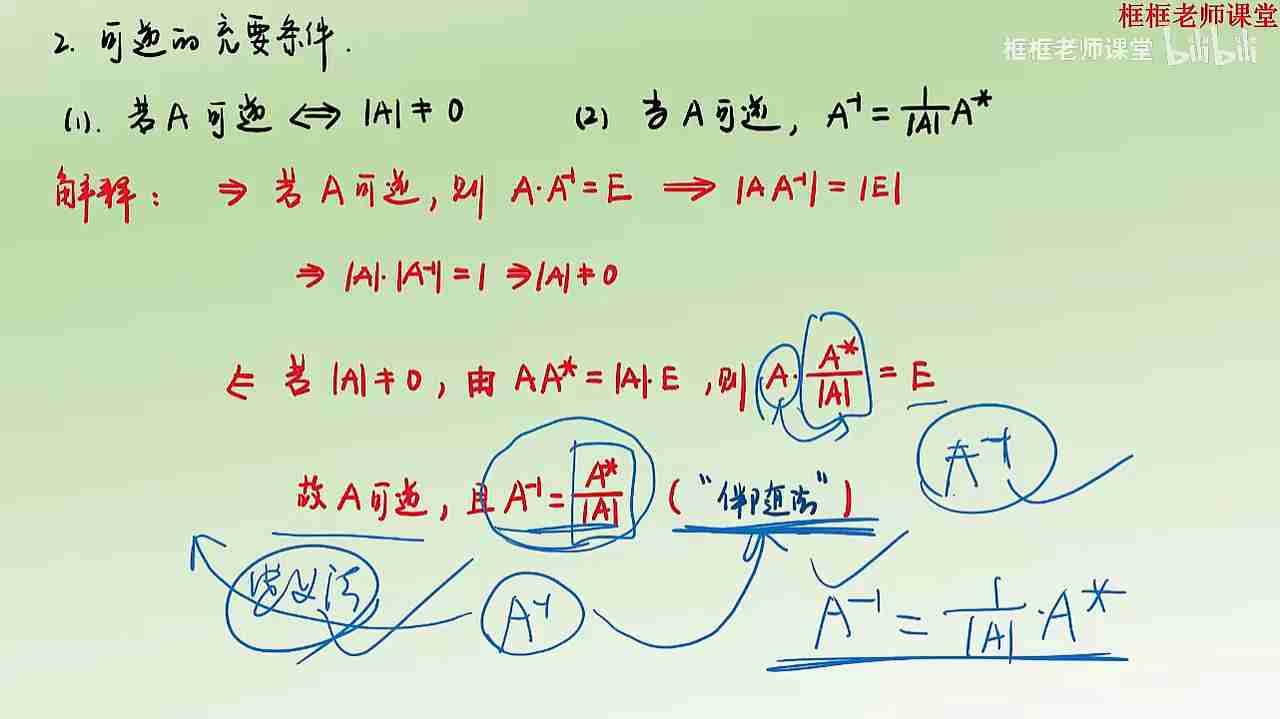 框框老师课堂
框框老师课堂 bilibili
2. 可逆的充要条件.
(1). 若A可逆 ⇔ |A|≠0 (2) 当A可逆, A⁻¹ = 1/|A| A*
解释: ⇒ 若A可逆, 则 A·A⁻¹ = E ⇒ |AA⁻¹| = |E|
⇒ |A|·|A⁻¹| = 1 ⇒ |A|≠0
⇐ 若|A|≠0, 由 AA* = |A|·E, 则 A·A*/|A| = E
A⁻¹
故A可逆, 且A⁻¹ = A*/|A| ("伴随法")
定义法 A⁻¹ A⁻¹ = 1/|A|·A*